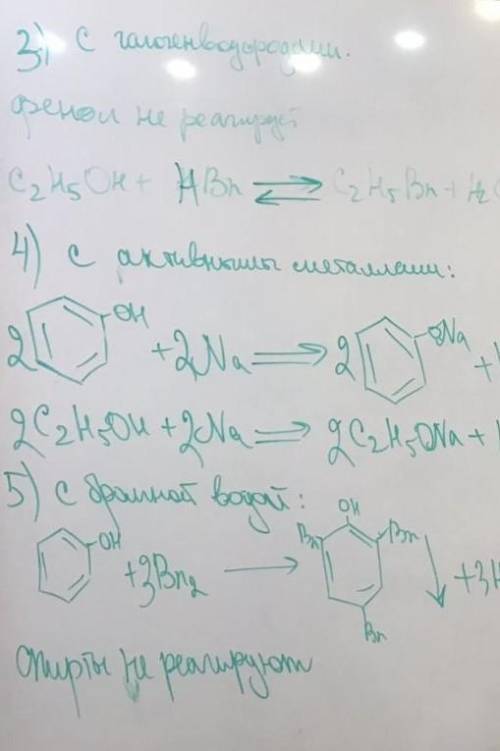 3) с галогенводородами.
фенол не реагирует
C₂H₅OH + HBr ⇌ C₂H₅Br + H₂O
4) с активными металлами:
2 OH + 2Na ⇒ 2 ONa +
2C₂H₅OH + 2Na ⇒ 2C₂H₅ONa +
5) с бромной водой:
OH + 3Br₂ → OH Br Br Br ↓ + 3H
Спирты не реагируют